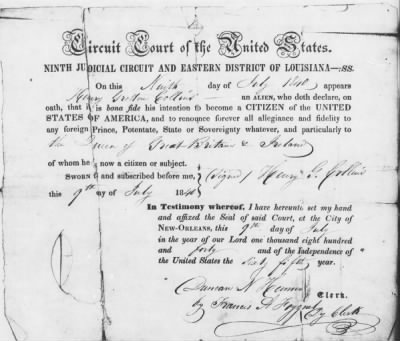 Circuit Court of the United States.
NINTH JUDICIAL CIRCUIT AND EASTERN DISTRICT OF LOUISIANA—:SS.
On this Ninth day of July 1840 appears
Henry Collins — AN ALIEN, who doth declare, on
oath, that it is bona fide his intention to become a CITIZEN of the UNITED
STATES OF AMERICA, and to renounce forever all allegiance and fidelity to
any foreign Prince, Potentate, State or Sovereignty whatever, and particularly to
the Queen of Great Britain & Ireland
of whom he is now a citizen or subject.
SWORN to and subscribed before me, (Signed) Henry G. Collins
this 9th day of July 1840
In Testimony whereof, I have hereunto set my hand
and affixed the Seal of said Court, at the City of
NEW-ORLEANS, this 9th day of July
in the year of our Lord one thousand eight hundred
and forty and of the Independence of
the United States the Sixty fifth year.
Duncan N. Hennen Clerk.
by Francis Dy Clerk